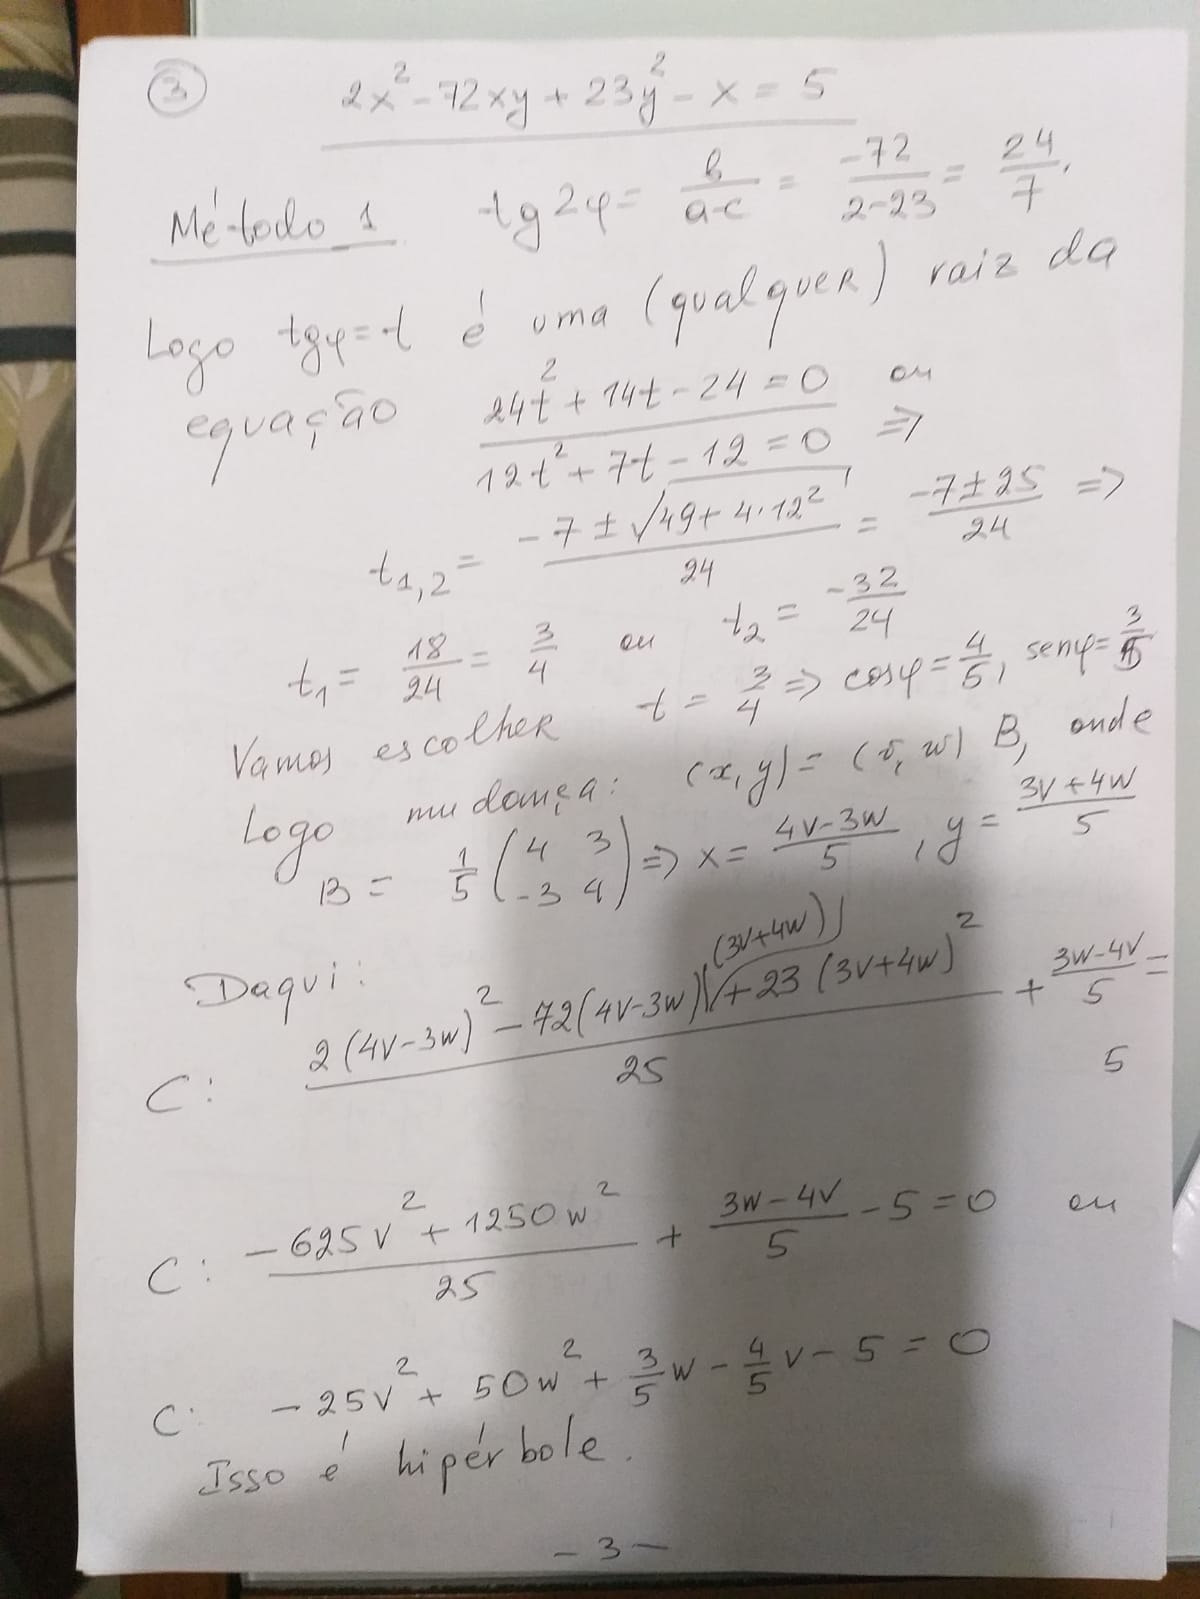 ③ 2x² - 72xy + 23y² - x = 5
Método 1 tg2φ = b/(a-c) = -72/(2-23) = 24/7.
Logo tgφ = t é uma (qualquer) raiz da
equação 24t² + 14t - 24 = 0 ou
12t² + 7t - 12 = 0 =>
t₁,₂ = (-7 ± √(49 + 4·12²))/24 = (-7 ± 25)/24 =>
t₁ = 18/24 = 3/4 ou t₂ = -32/24
Vamos escolher t = 3/4 => cosφ = 4/5, senφ = 3/5
Logo mudança: (x, y) = (v, w) B, onde
B = 1/5 (4 3; -3 4) => x = (4v-3w)/5, y = (3v+4w)/5
Daqui:
C: (2(4v-3w)² - 72(4v-3w)(3v+4w) + 23(3v+4w)²)/25 + (3w-4v)/5 = 5
C: (-625v² + 1250w²)/25 + (3w-4v)/5 - 5 = 0 ou
C: -25v² + 50w² + 3/5 w - 4/5 v - 5 = 0
Isso é hipérbole.
- 3 -